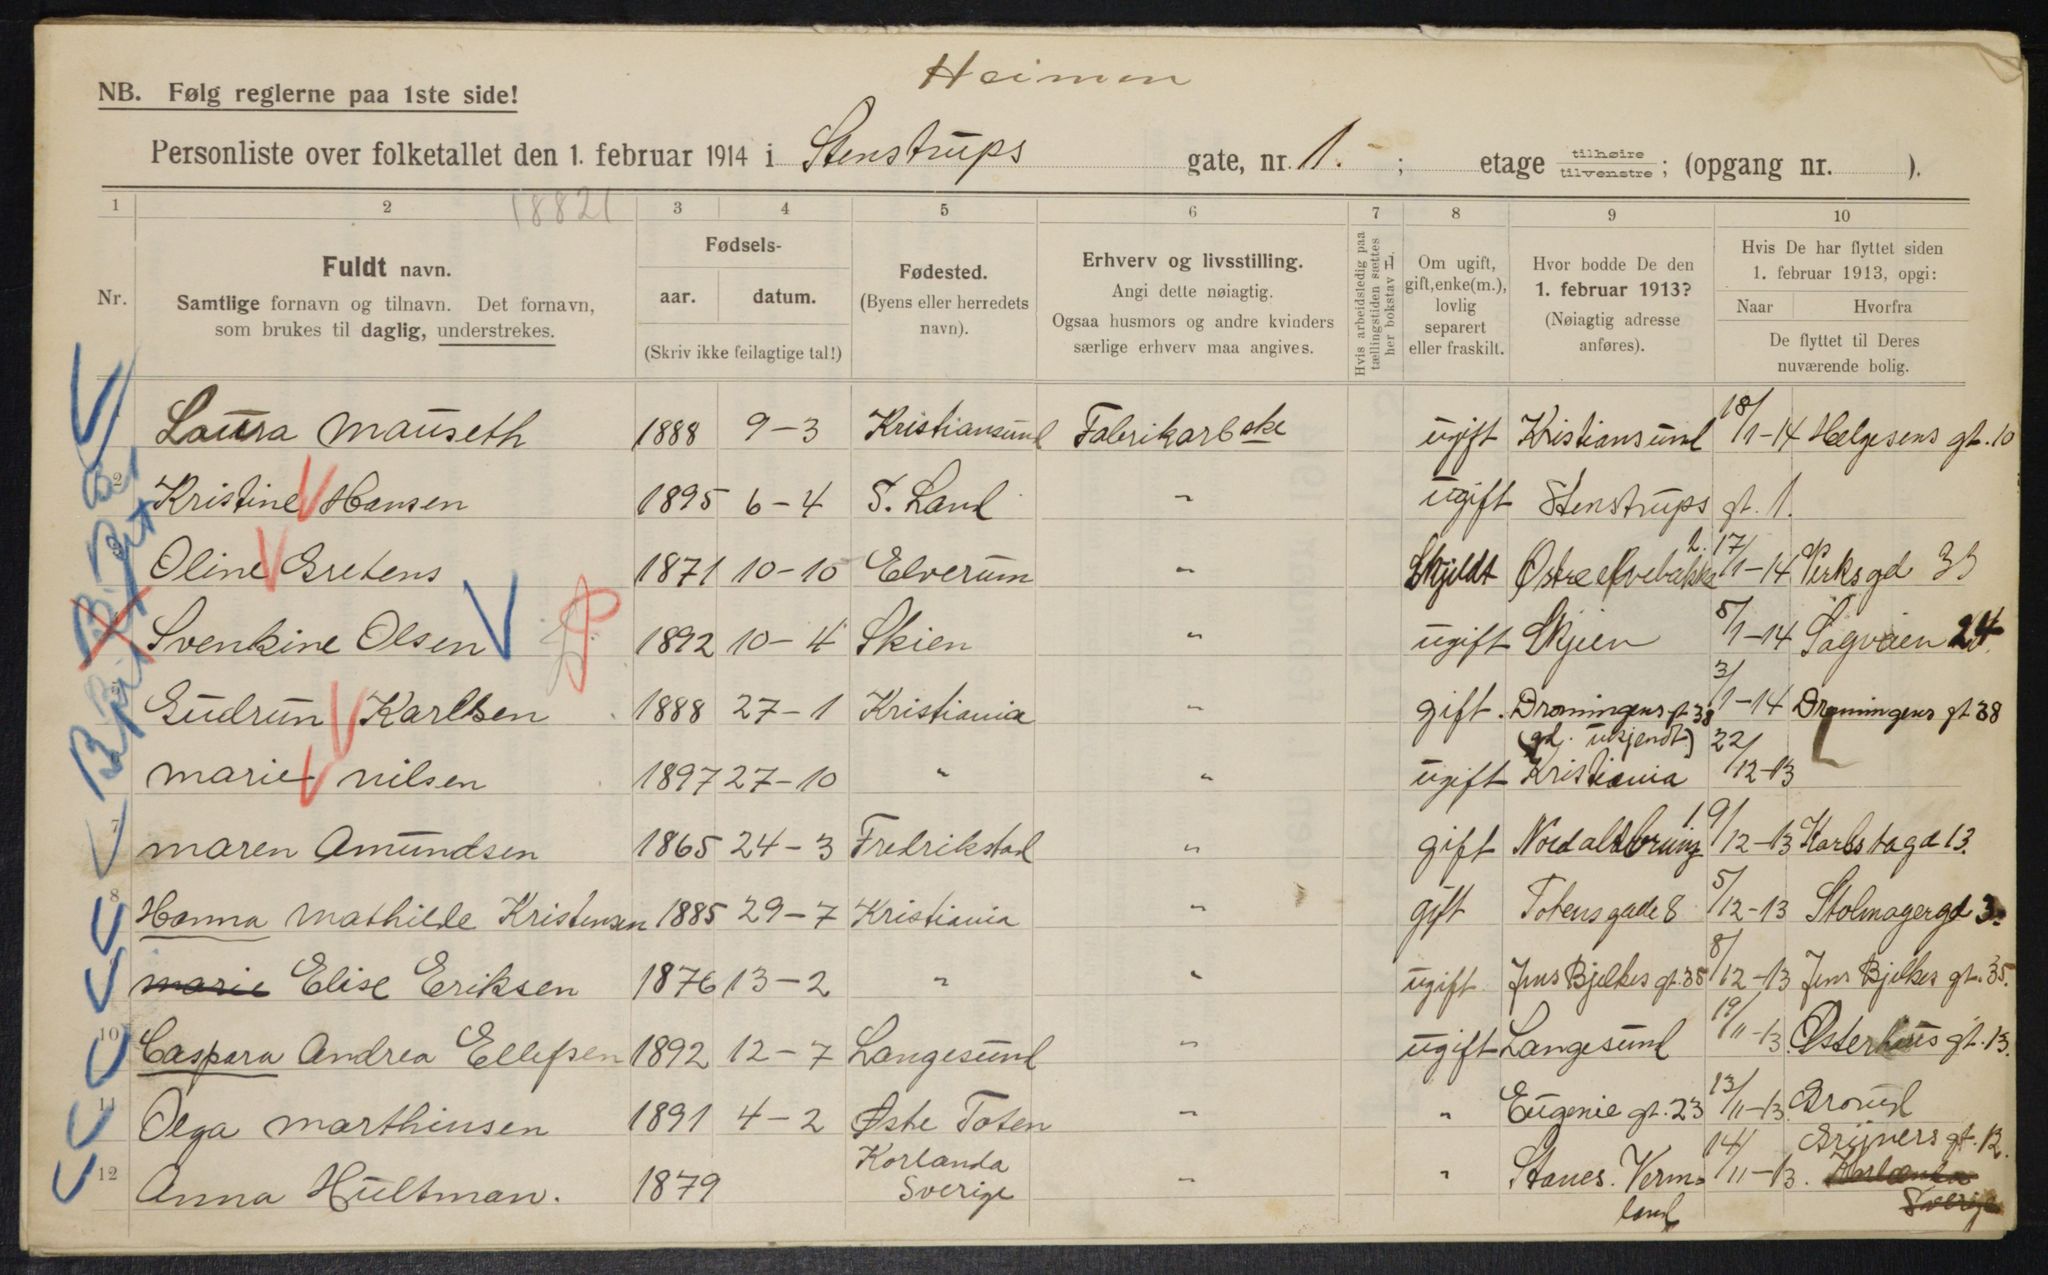 Heimen
NB. Følg reglerne paa 1ste side!
Personliste over folketallet den 1. februar 1914 i Stenstrups gate, nr. 1. ; etage tilhøire tilvenstre ; (opgang nr. ).
1 2 3 4 5 6 7 8 9 10
18821
Nr.
Fuldt navn.
Samtlige fornavn og tilnavn. Det fornavn,
som brukes til daglig, understrekes.
Fødsels-
aar. datum.
(Skriv ikke feilagtige tal!)
Fødested.
(Byens eller herredets
navn).
Erhverv og livsstilling.
Angi dette nøiagtig.
Ogsaa husmors og andre kvinders
særlige erhverv maa angives.
Hvis arbeidsledig paa
tællingstiden sættes
her bokstav L.
Om ugift,
gift, enke(m.),
lovlig
separert
eller fraskilt.
Hvor bodde De den
1. februar 1913?
(Nøiagtig adresse
anføres).
Hvis De har flyttet siden
1. februar 1913, opgi:
Naar Hvorfra
De flyttet til Deres
nuværende bolig.
Laura Mauseth 1888 9-3 Kristiansund Fabrikarbske ugift Kristiansund 18/1-14 Helgesens gt. 10
2 Kristine Hansen 1895 6-4 S. Land " ugift Stenstrups gt. 1.
Oline Gretens 1871 10-10 Elverum " Skjildt Østre 2. 17/1-14 33
Svenkine Olsen 1892 10-4 Skien " ugift Skjien 5/1-14 Sagveien 24
Gudrun Karlsen 1888 27-1 Kristiania " gift. Dronningens gt 38 3/1-14 Dronningens gt 38
Marie Nilsen 1897 27-10 " " ugift (gd. ukjendt) Kristiania 22/12-13
7 Maren Amundsen 1865 24-3 Fredrikstad " gift 19/12-13 13.
8 Hanna Mathilde Kristensen 1885 29-7 Kristiania " gift Totens gade 8 5/12-13 Stolmagergd 3.
Marie Elise Eriksen 1876 13-2 " " ugift Jens Bjelkes gt. 35 8/12-13 Jens Bjelkes gt. 35.
10 Caspara Andrea Ellefsen 1892 12-7 Langesund " ugift Langesund 19/11-13. Østerhus gt. 13.
11 Olga Marthinsen 1891 4-2 Østre Toten " " Eugenie gt. 23 13/11-13. Grorud
12 Anna Hultman. 1879 Korlanda Sverige " " Stanes. Vermland 14/11-13. gt. 12. Sverige